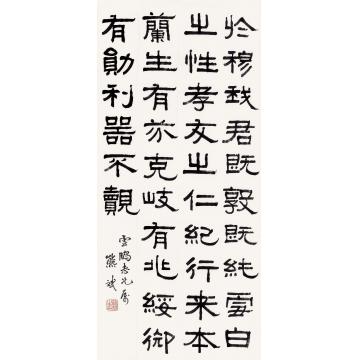 於穆我君既敦既純雪白
之性孝友之仁紀行来本
蘭生有芬克岐有兆綏御
有勛利器不覿
雲鵬老兄屬
熊斌